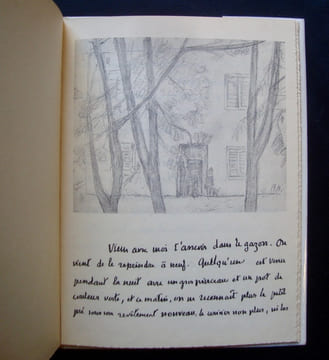 Viens avec moi t'asseoir dans le gazon. On
vient de le repeindre à neuf. Quelqu'un est venu
pendant la nuit avec un gros pinceau et un pot de
couleur verte, et ce matin, on ne reconnaît plus le petit
pré sous son revêtement nouveau, le cerisier non plus, ni les